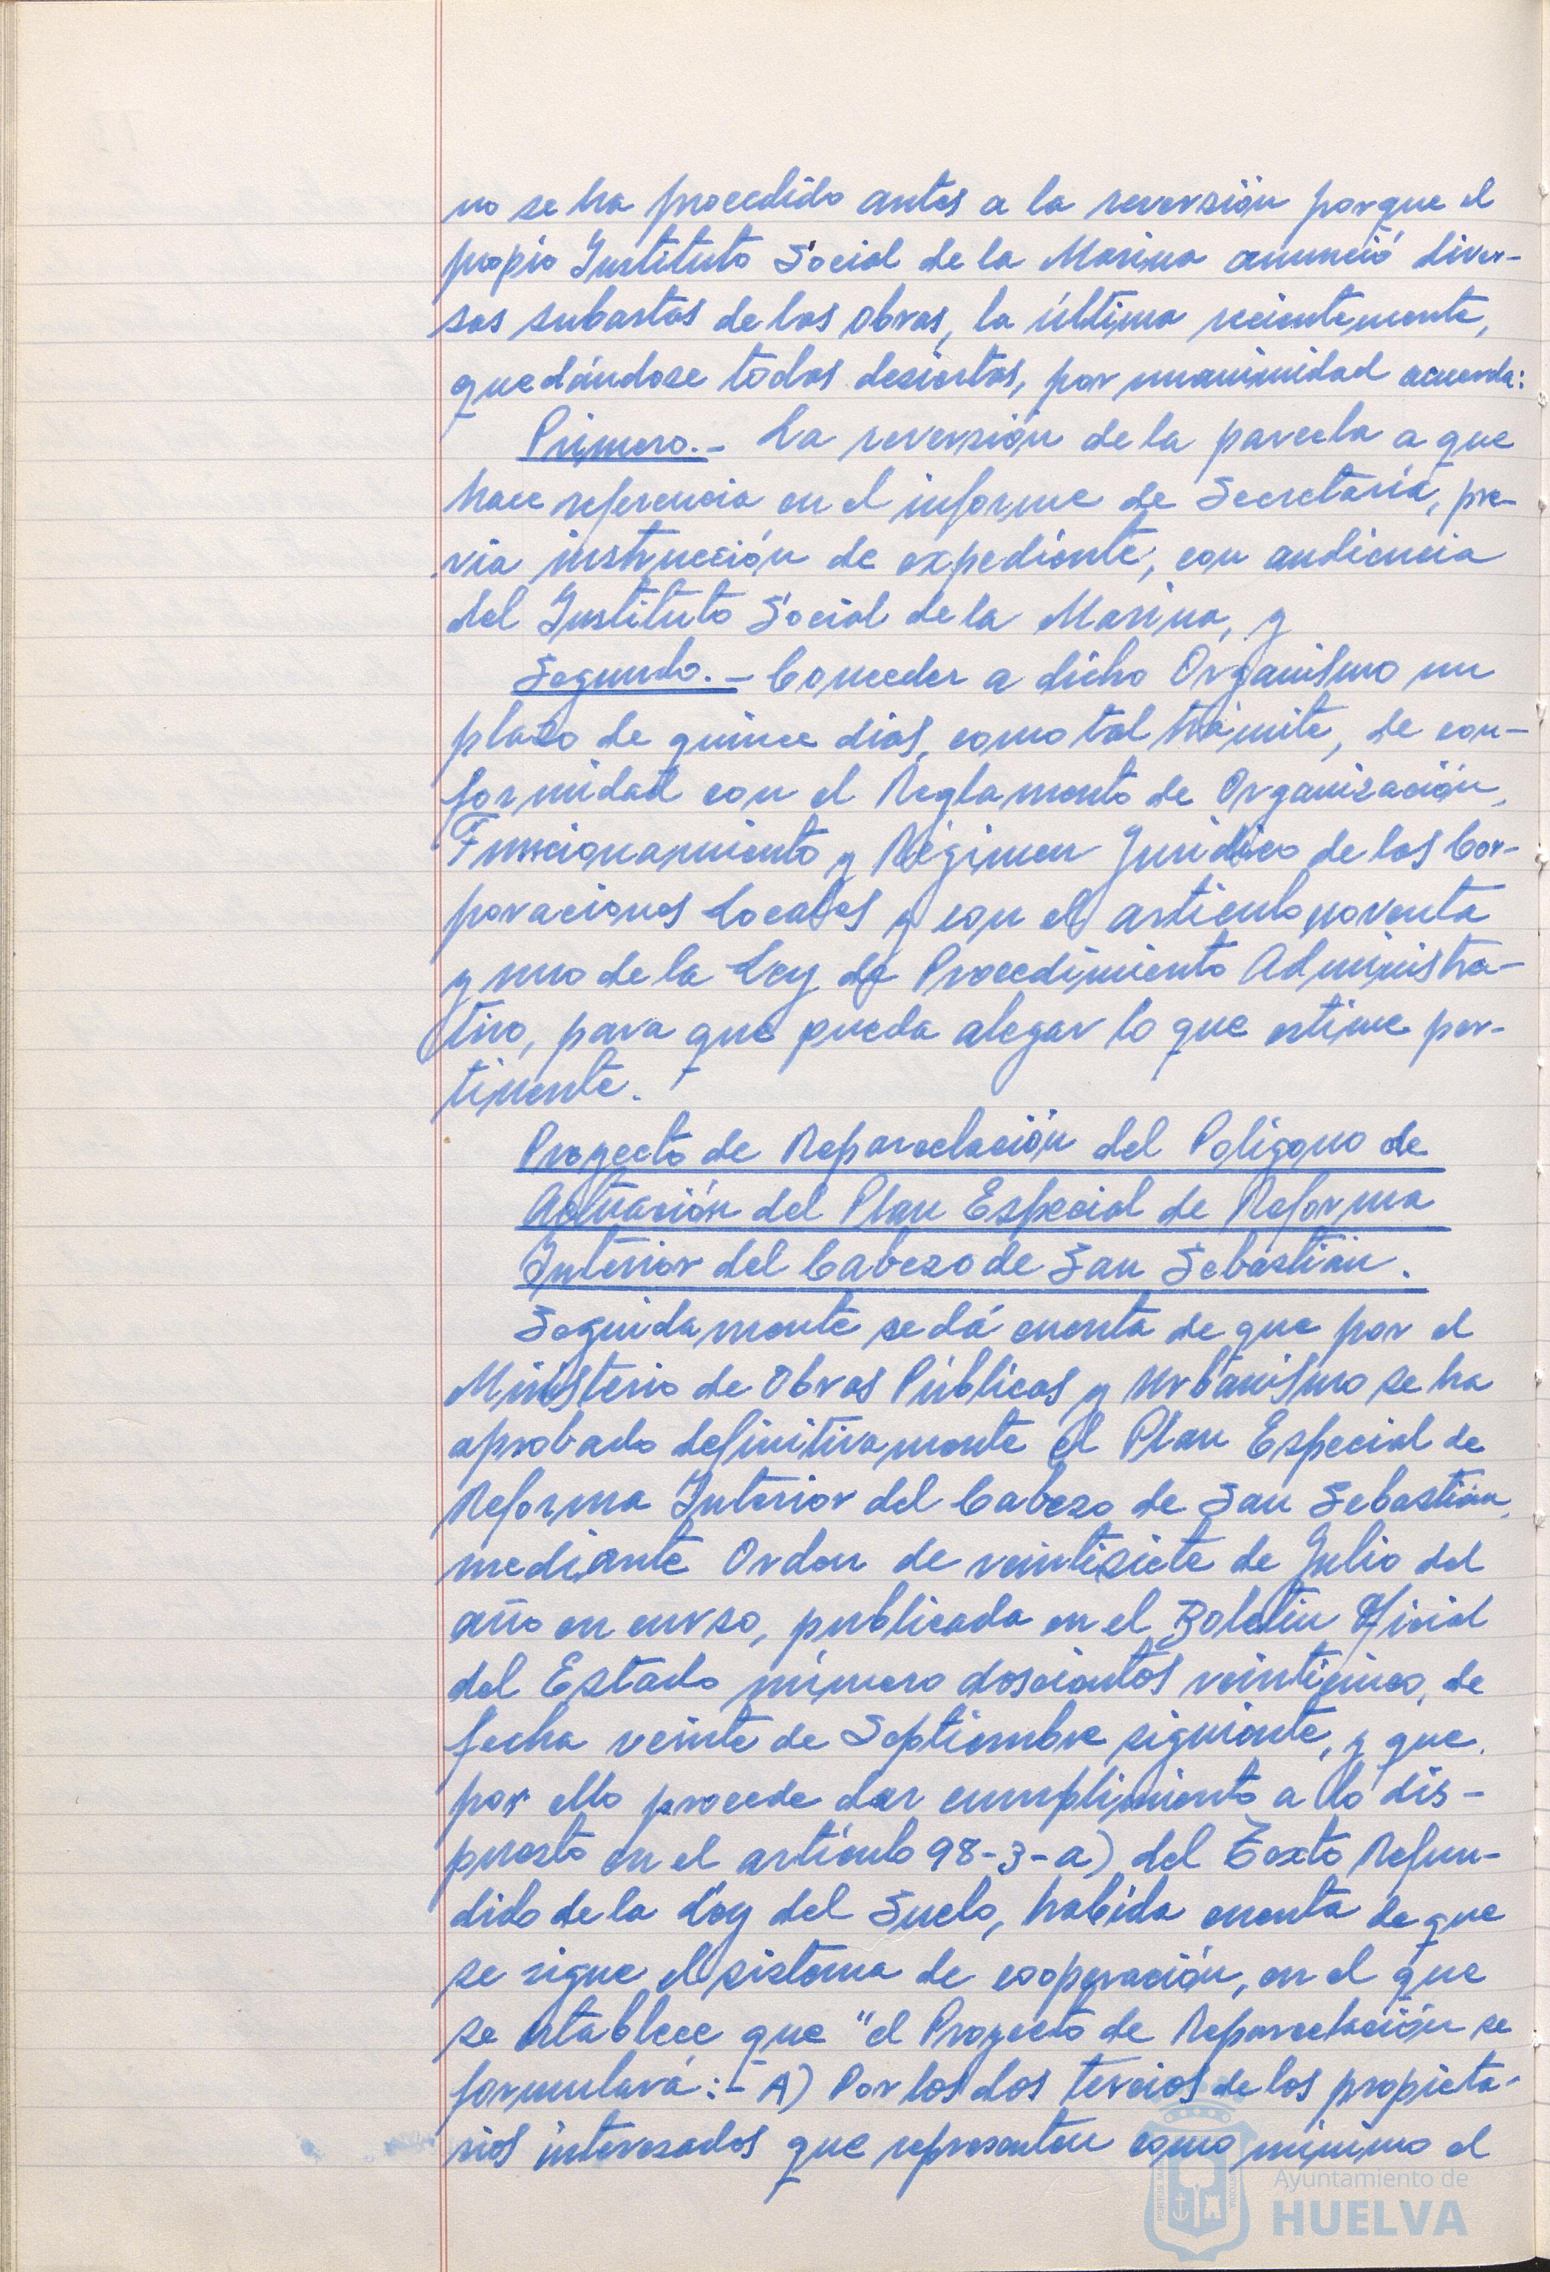 no se ha procedido antes a la reversión porque el
propio Instituto Social de la Marina anunció diver-
sas subastas de las obras, la última recientemente,
quedándose todas desiertas, por unanimidad acuerda:
Primero.- La reversión de la parcela a que
hace referencia en el informe de Secretaría, pre-
via instrucción de expediente, con audiencia
del Instituto Social de la Marina, y
Segundo.- Conceder a dicho Organismo un
plazo de quince dias, como tal trámite, de con-
formidad con el Reglamento de Organización,
Funcionamiento y Régimen Jurídico de las Cor-
poraciones Locales y con el artículo noventa
y uno de la Ley de Procedimiento Administra-
tivo, para que pueda alegar lo que estime per-
tinente.
Proyecto de Reparcelación del Polígono de
Actuación del Plan Especial de Reforma
Interior del Cabezo de San Sebastián.
Seguidamente se dá cuenta de que por el
Ministerio de Obras Públicas y Urbanismo se ha
aprobado definitivamente el Plan Especial de
Reforma Interior del Cabezo de San Sebastián,
mediante Orden de veintisiete de Julio del
año en curso, publicada en el Boletín Oficial
del Estado número doscientos veinticinco, de
fecha veinte de Septiembre siguiente, y que
por ello procede dar cumplimiento a lo dis-
puesto en el artículo 98-3-a) del Texto Refun-
dido de la Ley del Suelo, habida cuenta de que
se sigue el sistema de cooperación, en el que
se establece que "el Proyecto de Reparcelación se
formulará:- A) Por los dos tercios de los propieta-
rios interesados que representen como mínimo el
Ayuntamiento de
HUELVA